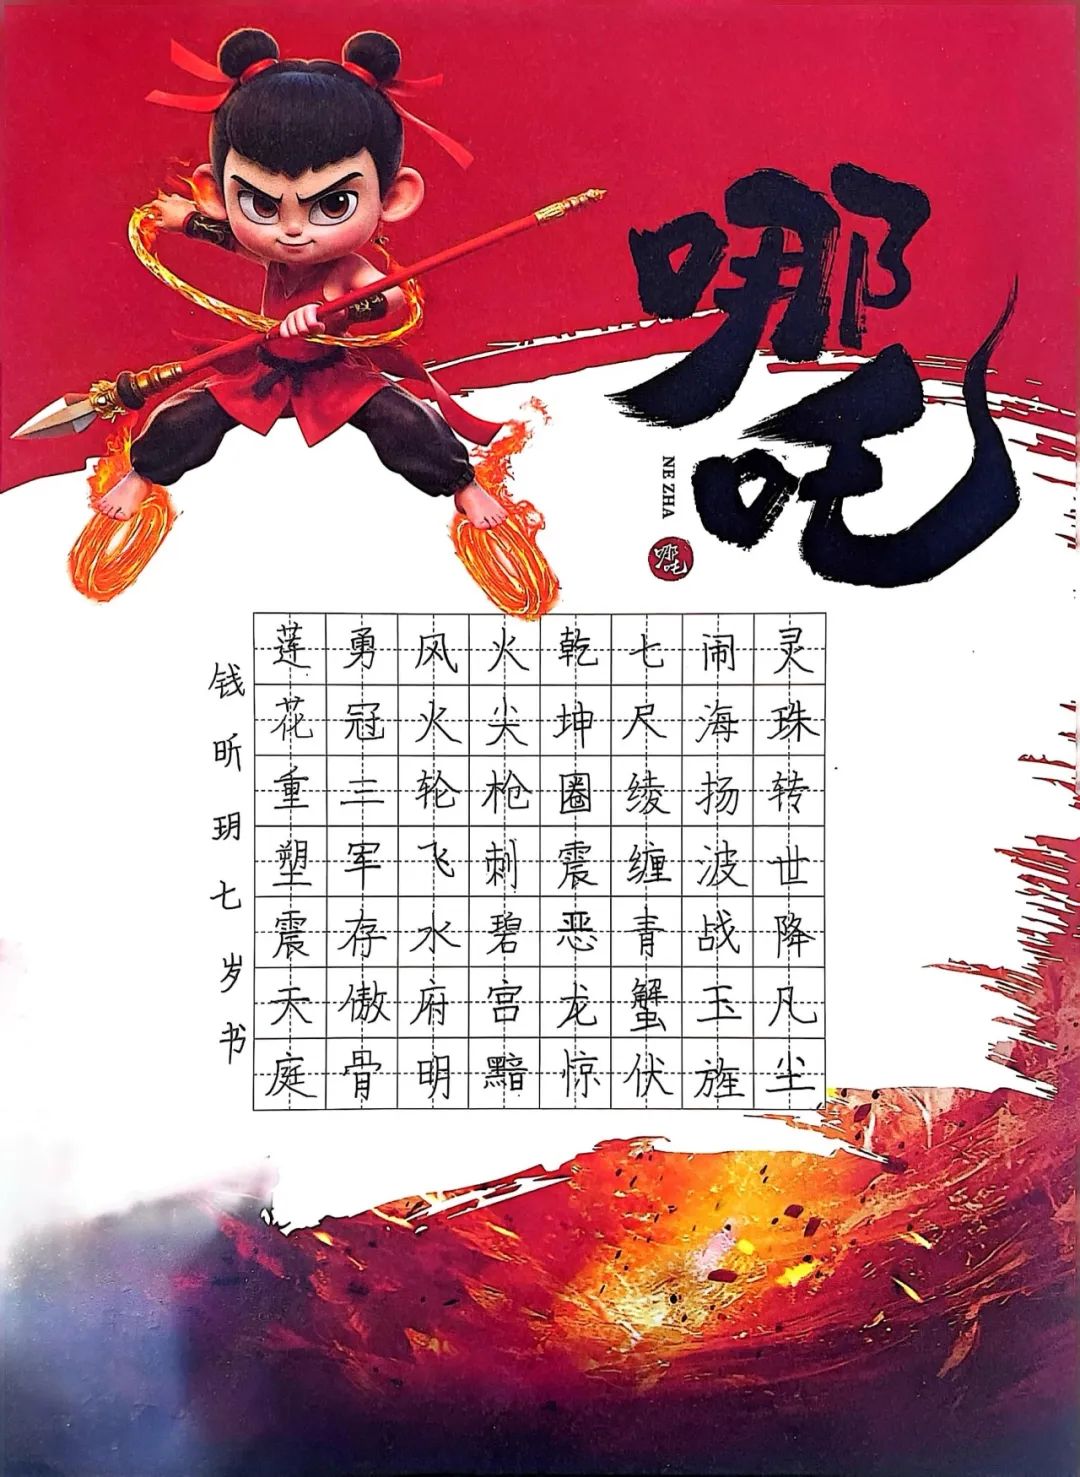 哪吒
NE ZHA
哪吒
灵珠转世降凡尘
闹海扬波战玉旌
七尺绫缠青蟹伏
乾坤圈震恶龙惊
火尖枪刺碧宫黯
风火轮飞水府明
勇冠三军存傲骨
莲花重塑震天庭
钱昕玥七岁书